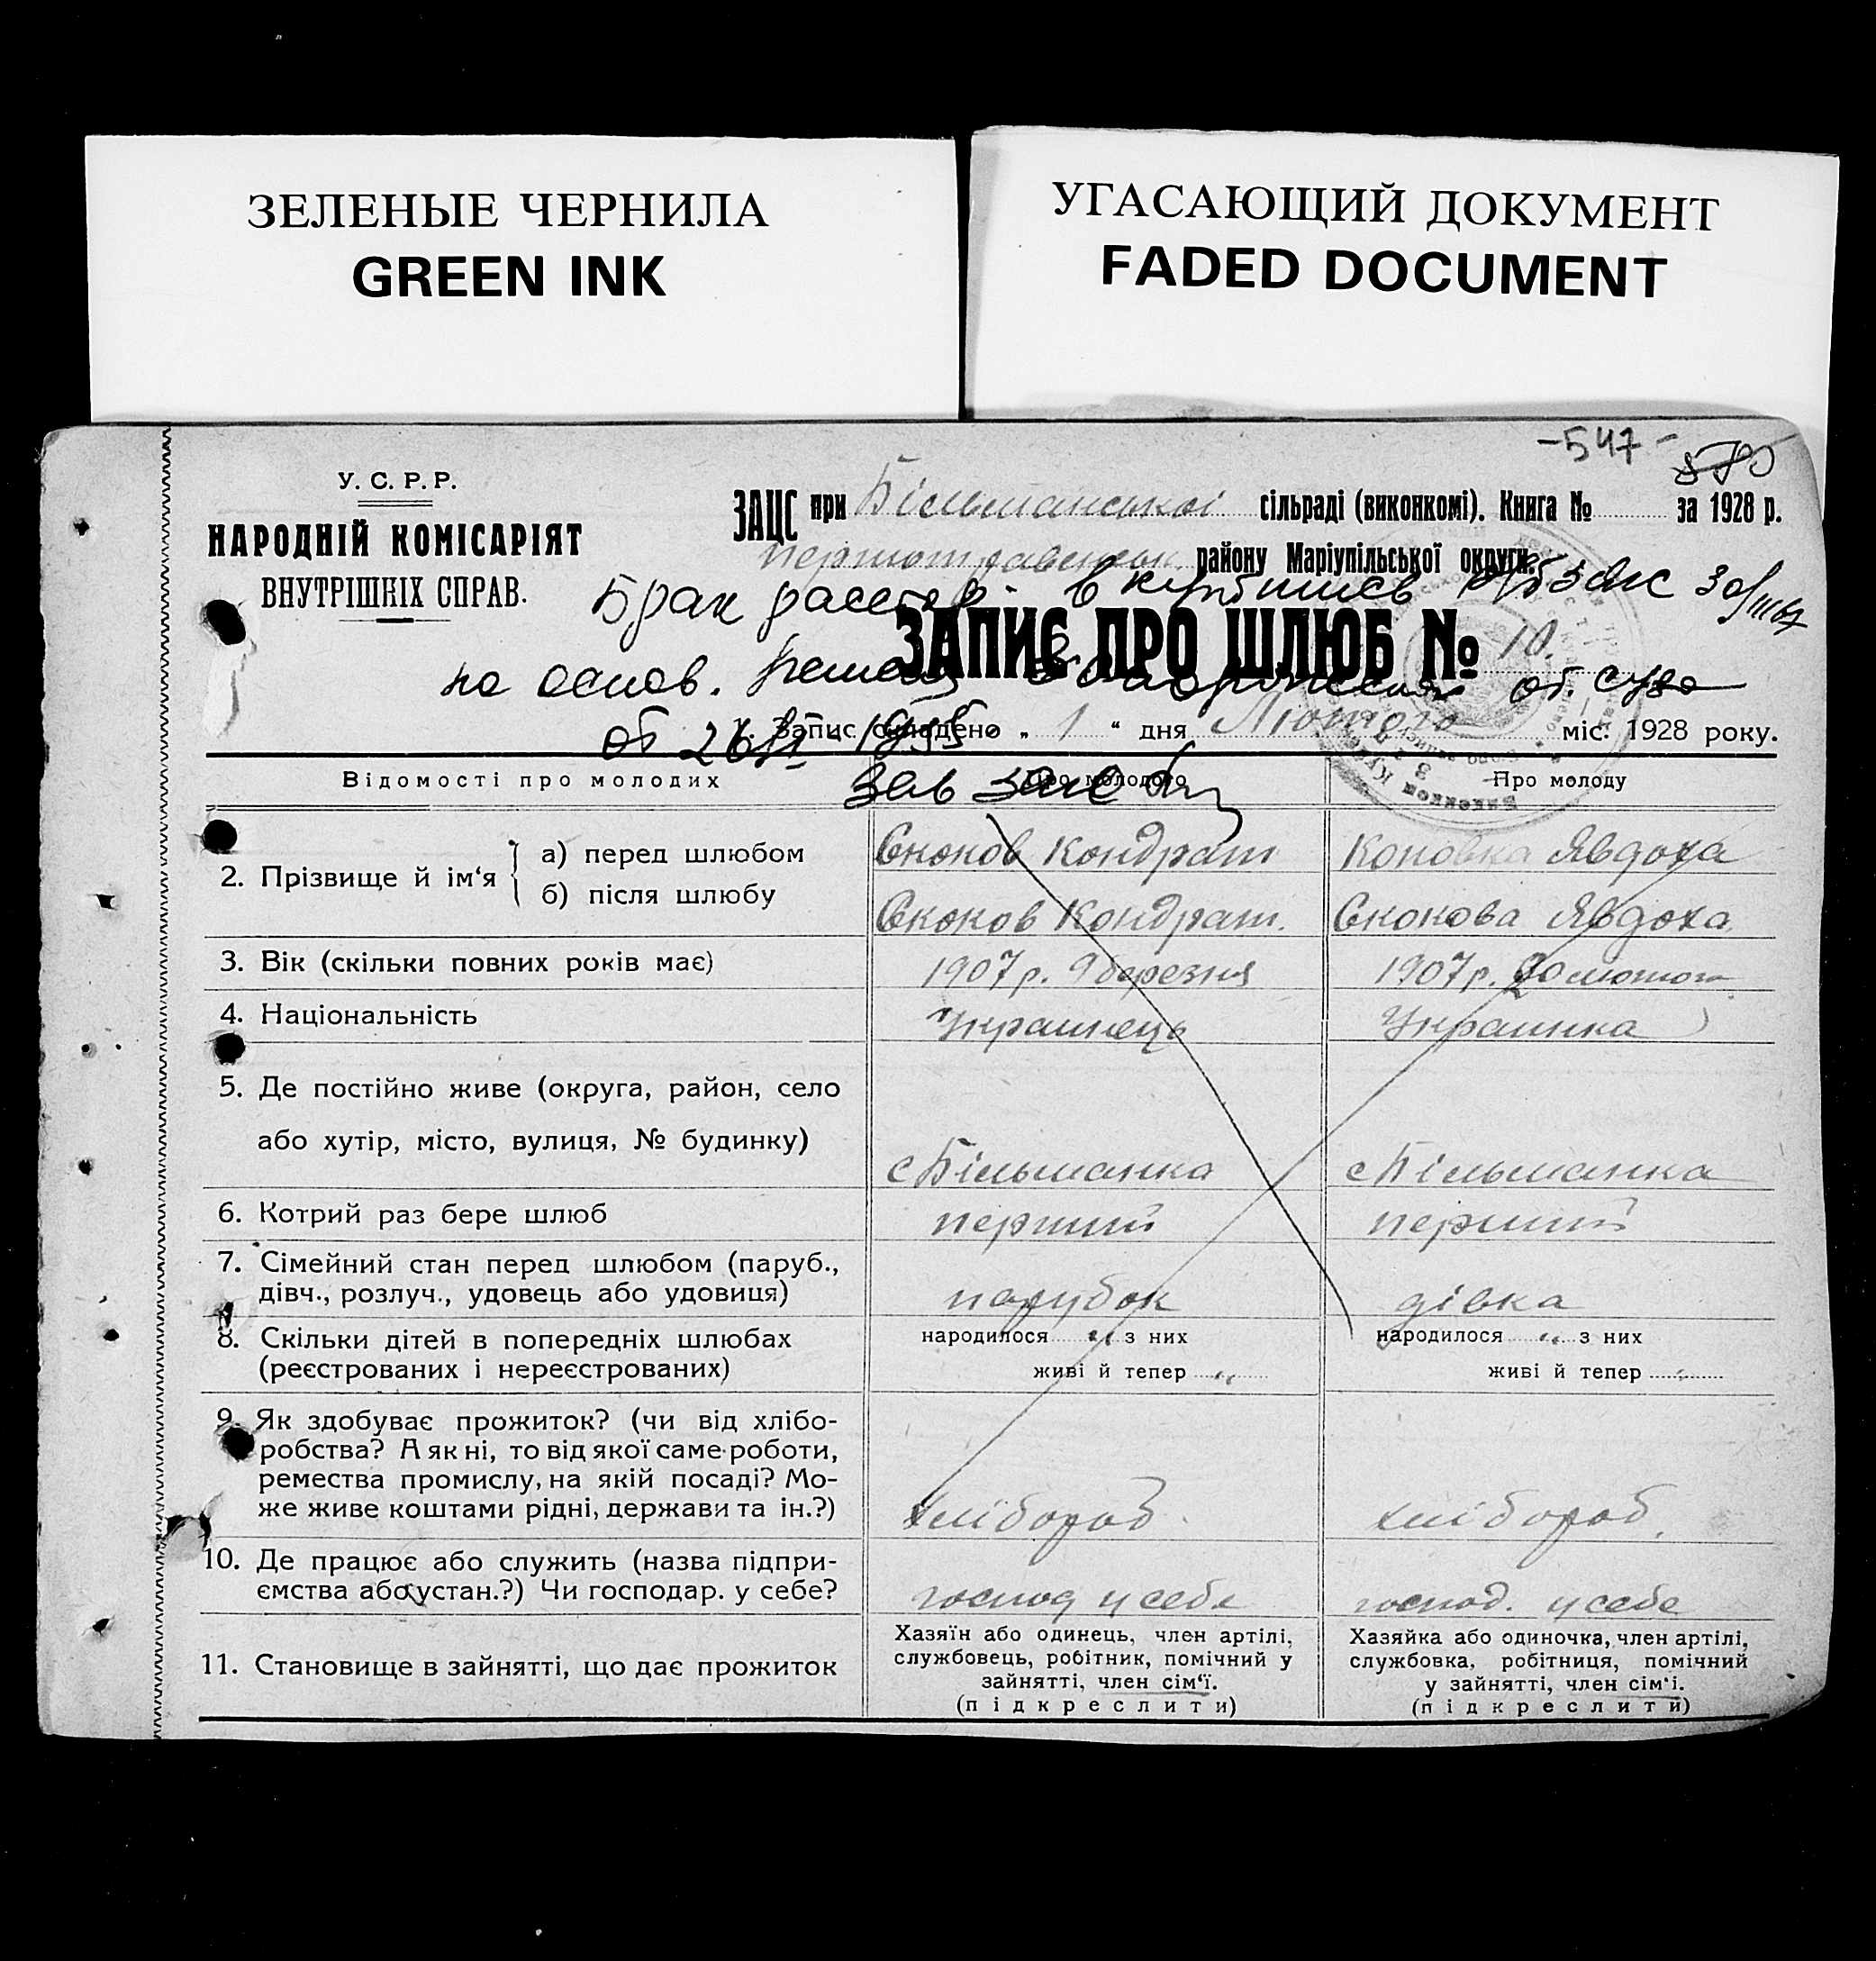 ЗЕЛЕНЫЕ ЧЕРНИЛА
GREEN INK
УГАСАЮЩИЙ ДОКУМЕНТ
FADED DOCUMENT
-547-
У. С. Р. Р.
НАРОДНІЙ КОМІСАРІЯТ
ВНУТРІШНІХ СПРАВ.
ЗАЦС при Більманської сільраді (виконкомі). Книга № за 1928 р.
району Маріупільської округи.
Брак расторг. в
ЗАПИС ПРО ШЛЮБ № 10.
на основ. от. суда
1. Запис складено „ 1 “ дня Лютого міс. 1928 року.
Відомості про молодих
Про молодого
Про молоду
2. Прізвище й ім‘я
а) перед шлюбом
Скоков Кондрат
Коновка Явдоха
б) після шлюбу
Скоков Кондрат.
Скокова Явдоха
3. Вік (скільки повних років має)
1907 р. 9 березня
1907 р. 20 лютого
4. Національність
Українець
Українка
5. Де постійно живе (округа, район, село
або хутір, місто, вулиця, № будинку)
с Більманка
с Більманка
6. Котрий раз бере шлюб
перший
перший
7. Сімейний стан перед шлюбом (паруб.,
дівч., розлуч., удовець або удовиця)
парубок
дівка
8. Скільки дітей в попередніх шлюбах
(реєстрованих і нереєстрованих)
народилося „ з них
живі й тепер „
народилося „ з них
живі й тепер „
9. Як здобуває прожиток? (чи від хлібо-
робства? А як ні, то від якої саме роботи,
ремества промислу, на якій посаді? Мо-
же живе коштами рідні, держави та ін.?)
хлібороб.
хлібороб.
10. Де працює або служить (назва підпри-
ємства або устан.?) Чи господар. у себе?
господ у себе
господ. у себе
11. Становище в зайнятті, що дає прожиток
Хазяїн або одинець, член артілі,
службовець, робітник, помічний у
зайнятті, член сім‘ї.
(підкреслити)
Хазяйка або одиночка, член артілі,
службовка, робітниця, помічний
у зайнятті, член сім‘ї.
(підкреслити)